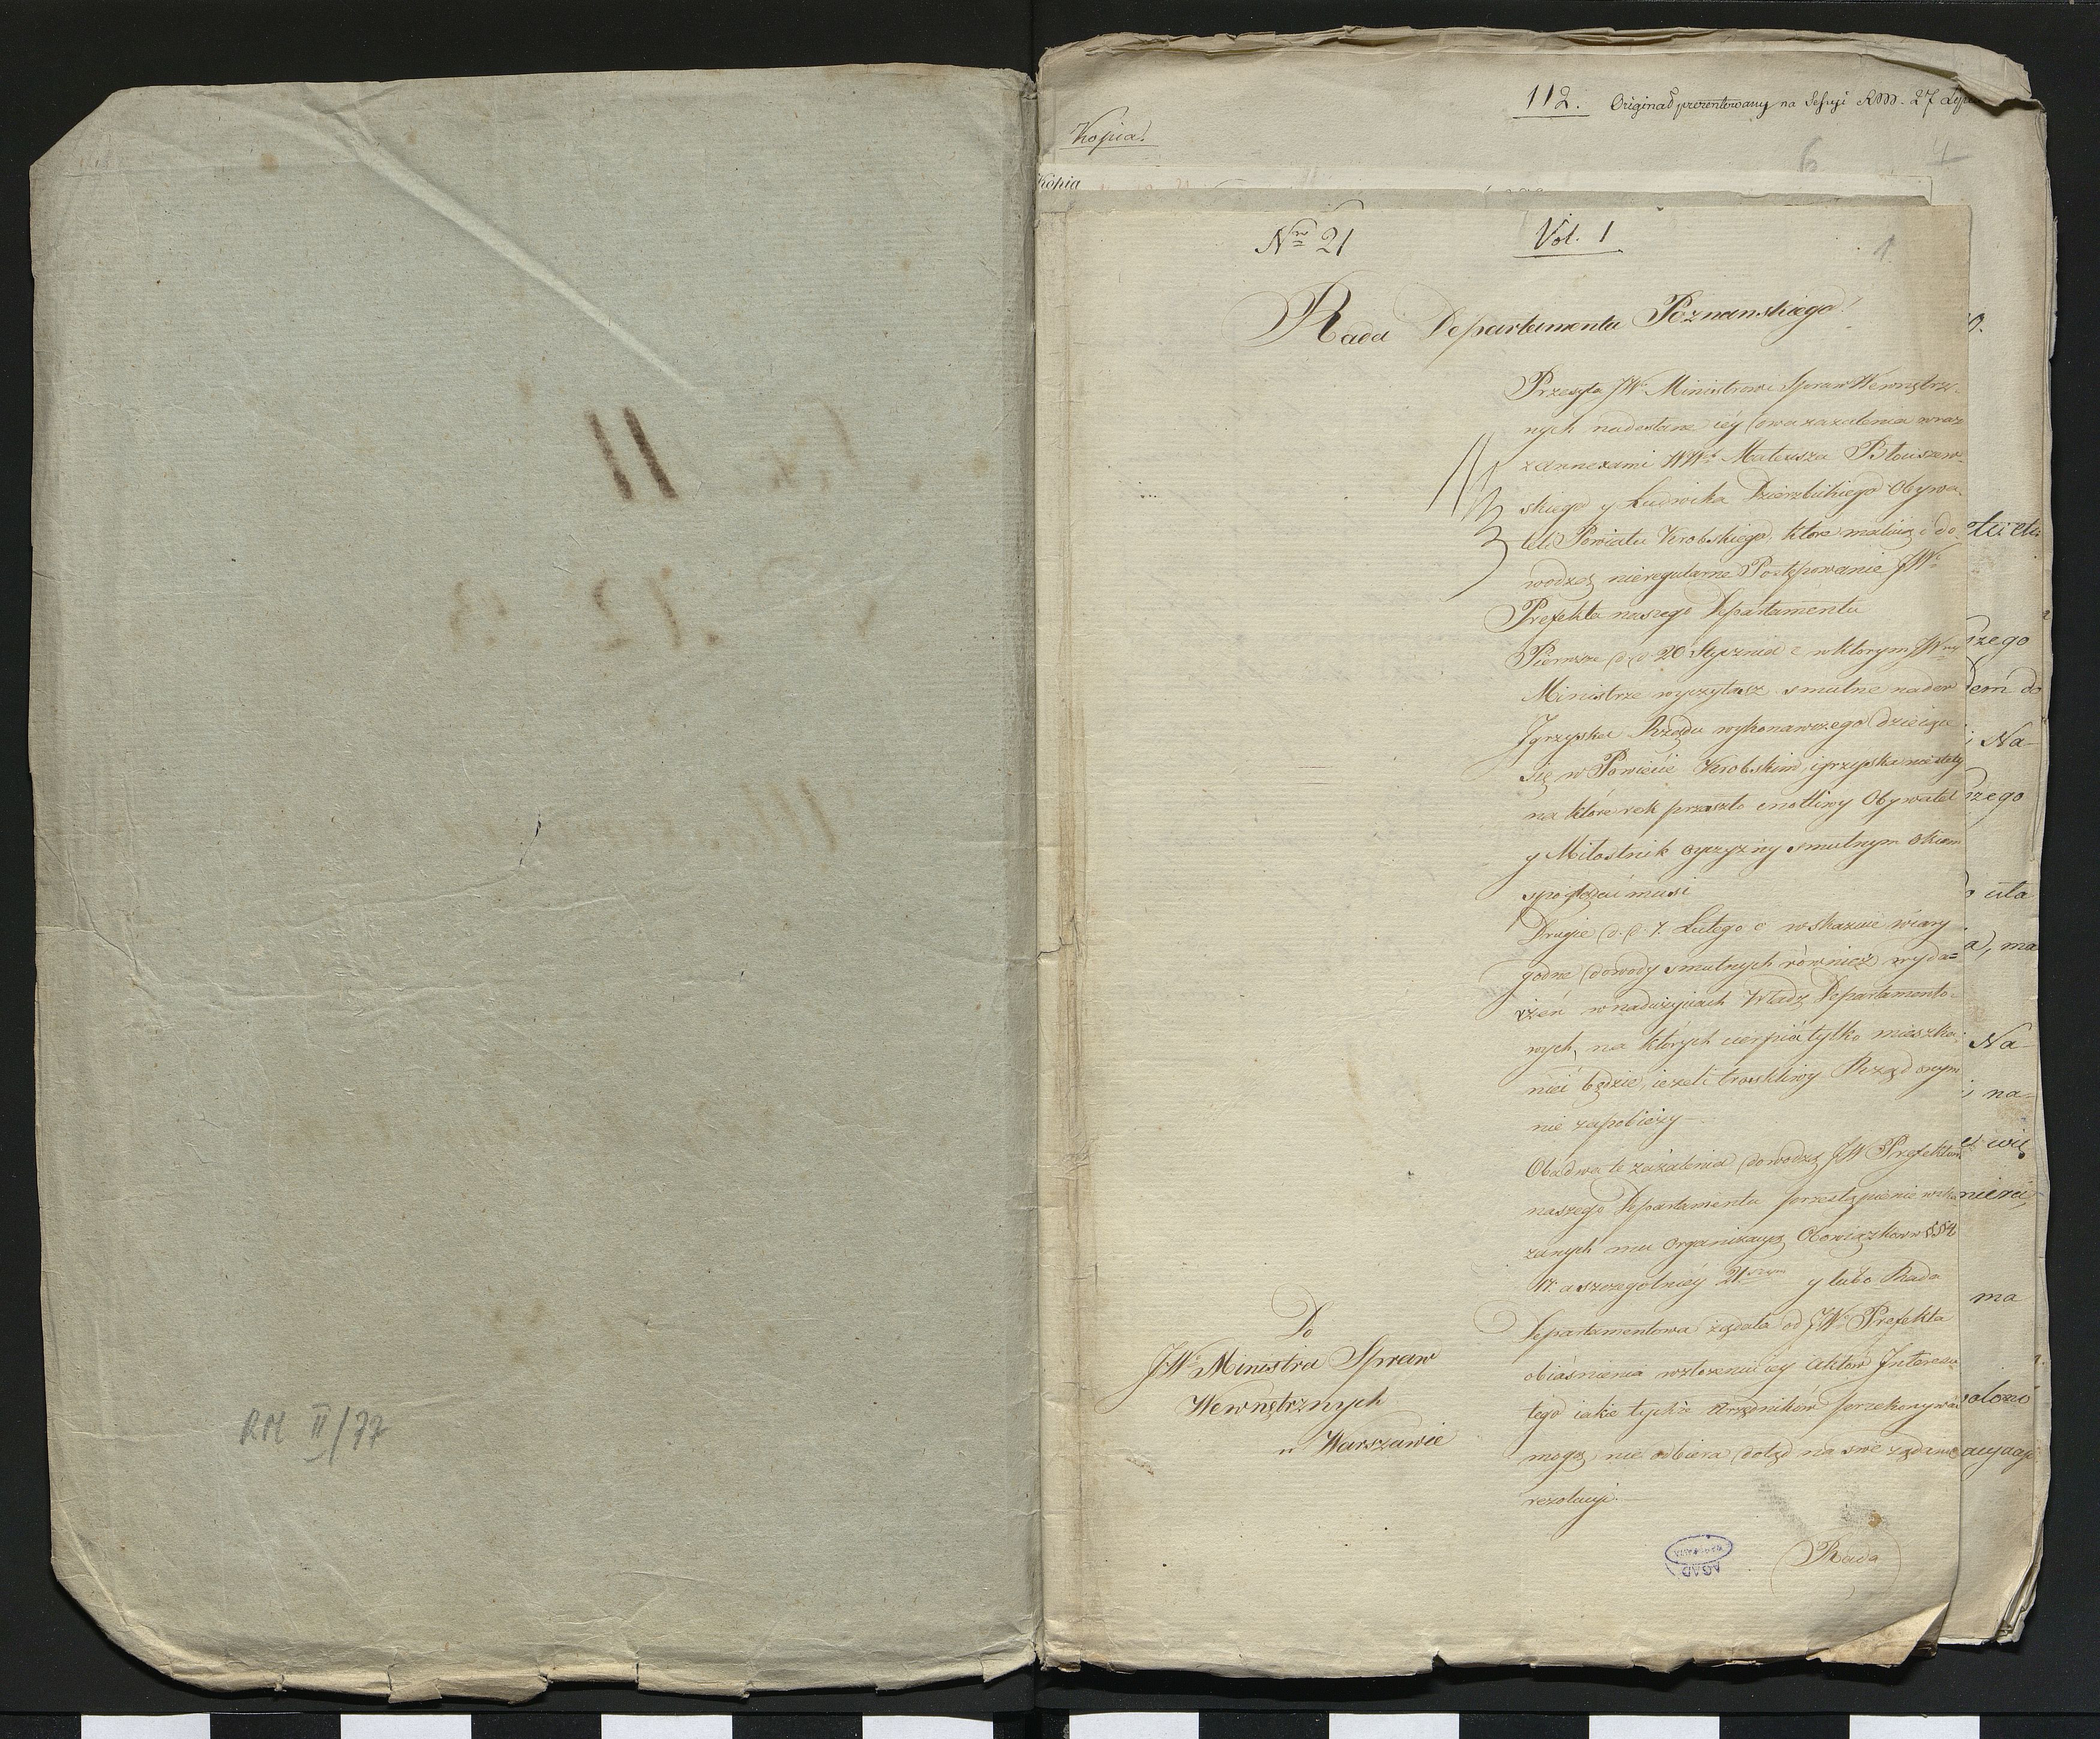 RM II/77
112. Originał prezentowany na Sessyi RM. 27
Kopia.
6 4
Kopia
Nro 21 Vol. 1
1
Rada Departamentu Poznanskiego
Przesyła JW. Ministrowi Spraw Wewnętrz-
nych nadesłane iéy dwa zażalenia wraz
z annexami WW. Mateusza
skiego y Ludwika Dzierzbickiego Obywa-
teli Powiatu Krobskiego, które maluią i do-
wodzą nieregularne Postępowanie JW.
Prefekta naszego Departamentu
Pierwsze d. d. 20 Stycznia c w ktorym JW
Ministrze wyczytasz smutne nader
Jgrzyska Rządu wykonawczego dzieiące
się w Powiecie Krobskim, igrzyska niestety
na które rok przeszło cnotliwy Obywatel
y Miłośnik oyczyzny smutnym okiem
spoglądać musi
Drugie d. d. 7. Lutego c wskazuie wiary
godne dowody smutnych również wyda=
rzeń w nadużyciach Władz Departamento-
wych, na których cierpiéć tylko mieszka-
niec będzie, ieżeli troskliwy Rząd onym
nie zapobieży
Obadwa te zażalenia dowodzą JW Prefekta
naszego Departamentu przestąpienie wska
zanych mu Organizacyą Obowiązkow
17. a szczegolniéy 21 y lubo Rada
Departamentowa żądała od JW. Prefekta
obiaśnienia w złożeniu iéy Aktów Interesu
tego iakie tychże Urzędników przekonywać
mogą, nie odbiera dotąd na swe żądanie
rezolucyi.
Do
JW. Ministra Spraw
Wewnętrznych
w Warszawie
AGAD
WARSZAWA
Rada